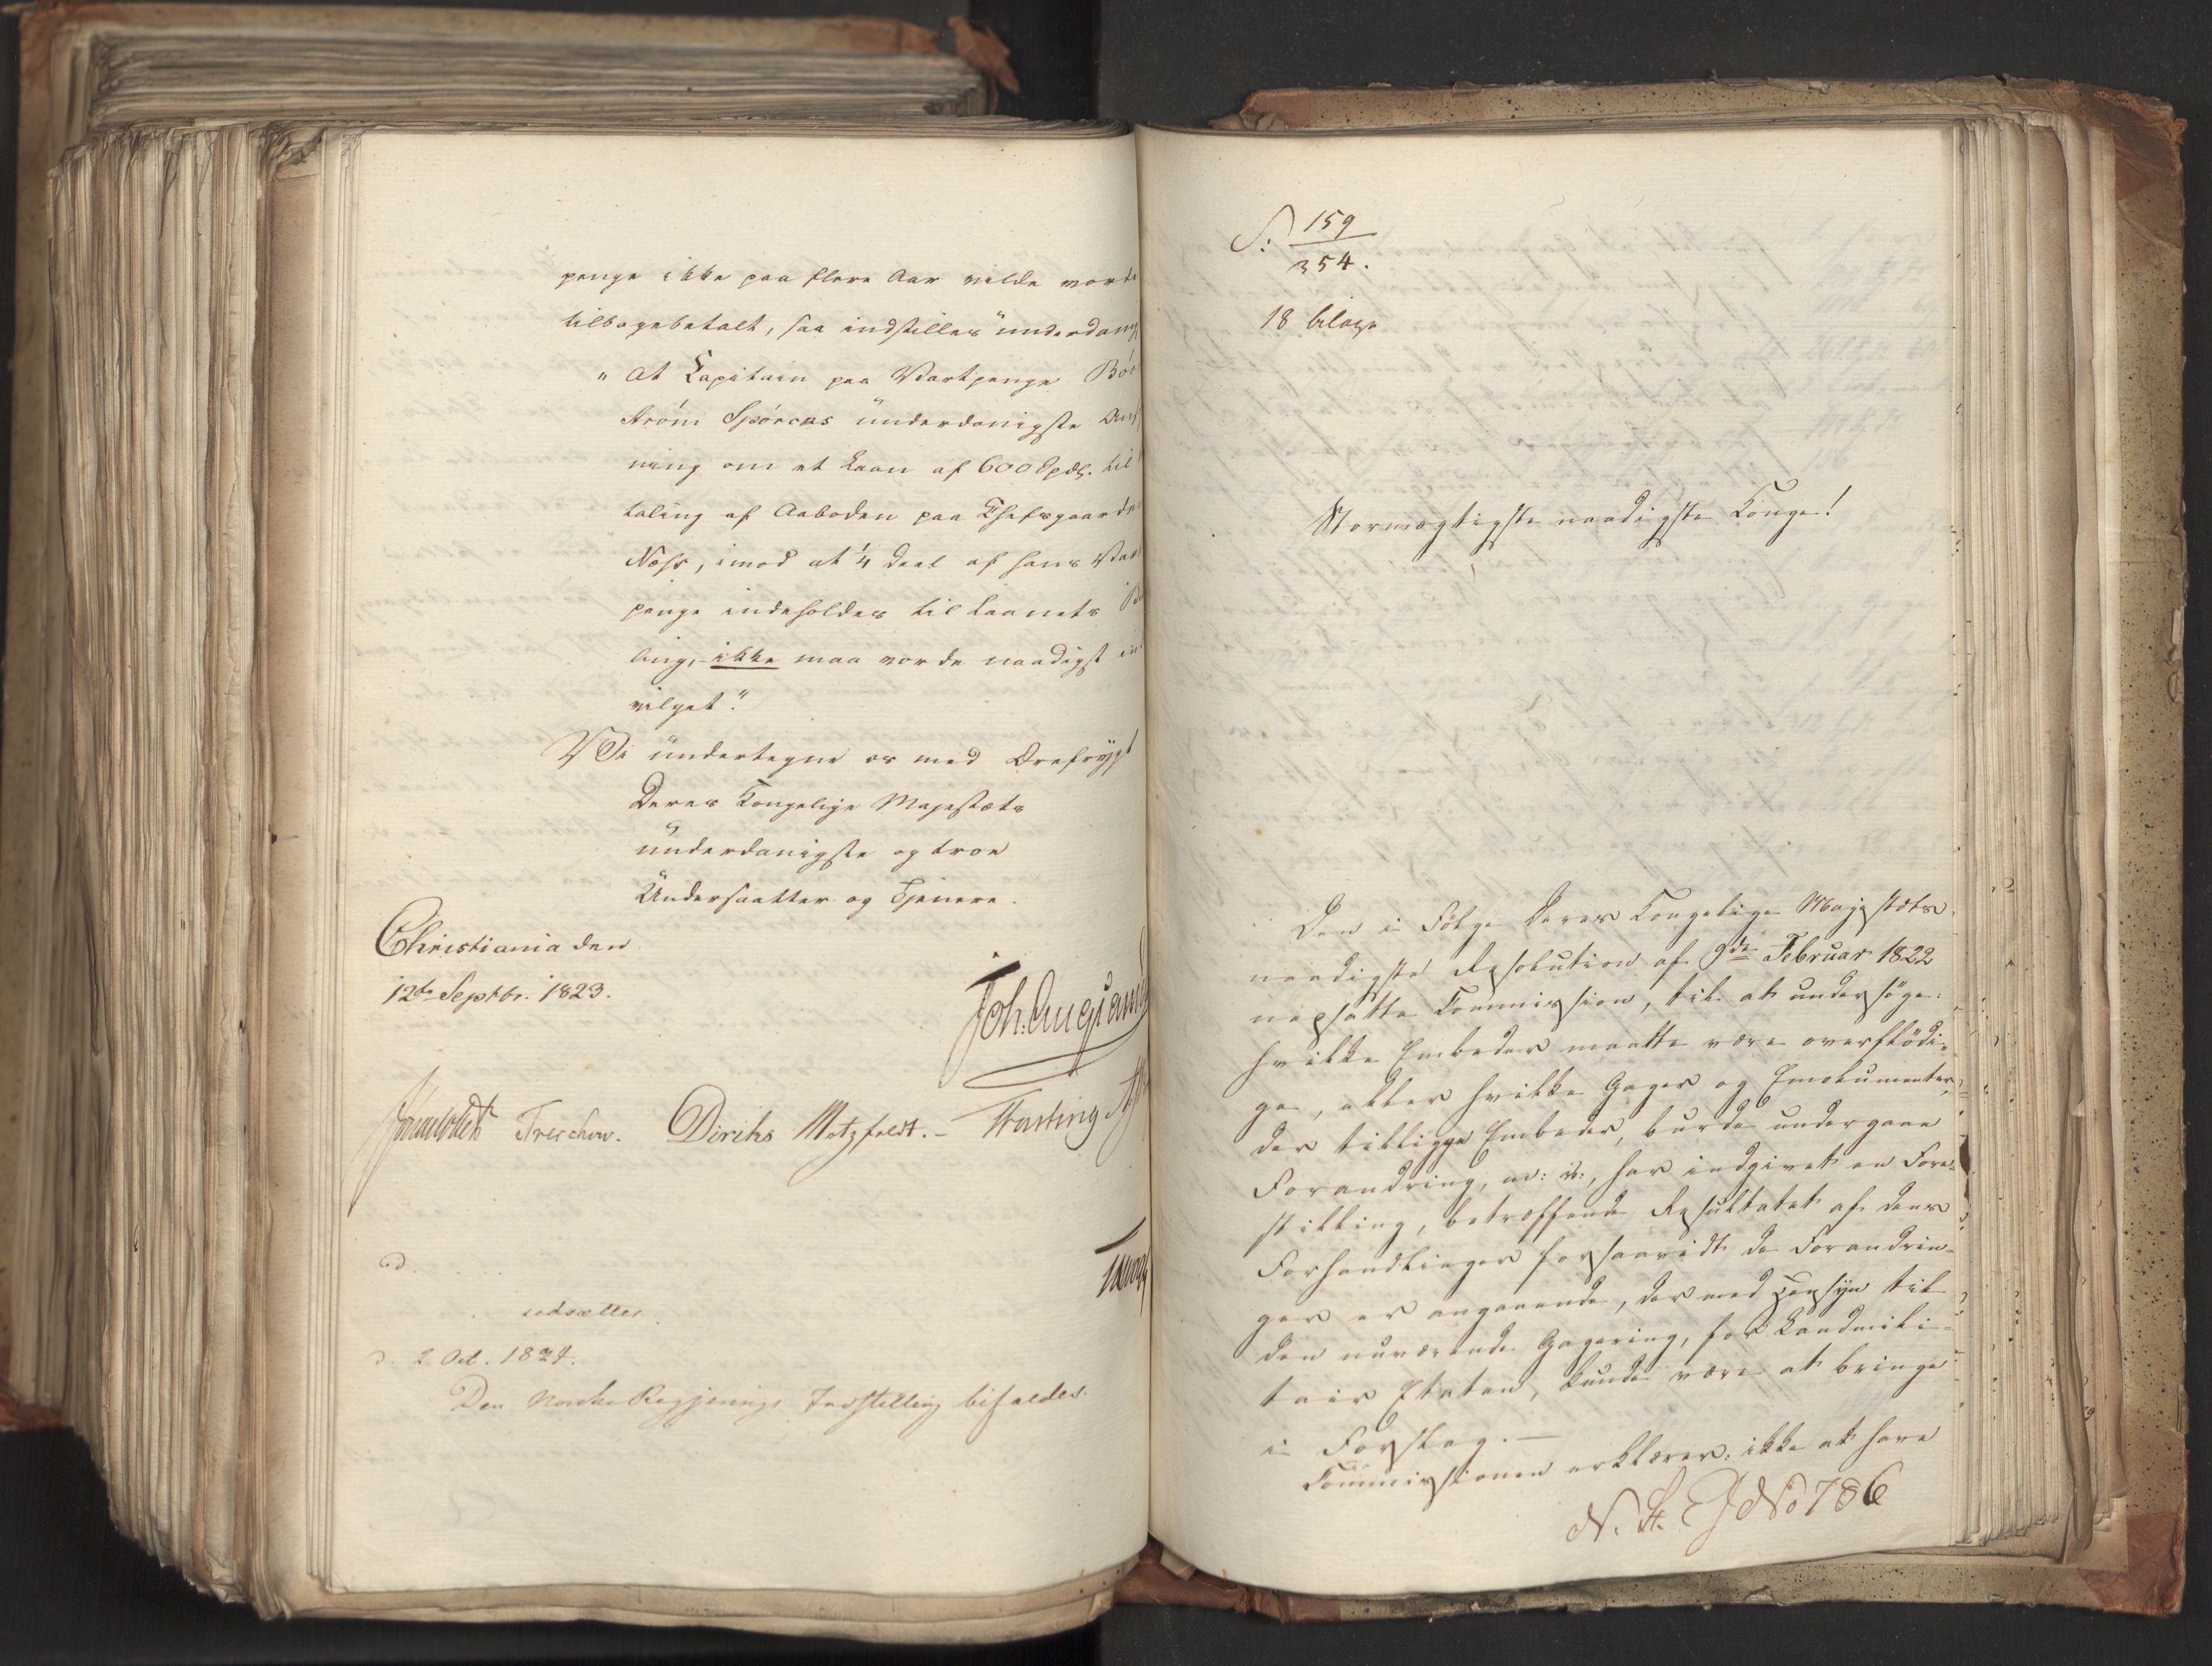 penge ikke paa flere Aar vilde vorde
tilbagebetalt, saa indstilles underdanig
" At Kapitain paa Vartpenge Bör
ström Spörcks underdanigste Ans
ning om et Laan af 600 Spdl. til
taling af Aaboden paa Chefsgaarden
Næss, imod at 1/4 Deel af hans Var
penge indeholdes til Laanets Be
ling, ikke maa vorde naadigst in
vilget."
Vi undertegne os med Ærefrygt
Deres Kongelige Majestæts
underdanigste og troe
Undersaatter og Tjenere.
Christiania den
12te Septbr. 1823.
Joh. Aug. Sand
Treschow. Diriks Motzfeldt. Fasting
udsættes
d. 2 Oct. 1824.
Den Norske Regjerings Indstilling bifaldes.
S: 159
354.
18 bilage
Stormægtigste naadigste Konge!
Den i Følge Deres Kongelige Majestæts
naadigste Resolution af 9de Februar 1822
nedsatte Commission, til at undersøge:
hvilke Embeder maatte være overflödi-
ge, eller hvilke Gager og Emolumenter,
der tillægges Embeder, burde undergaae
Forandring, m: v:, har indgivet en Fore-
stilling, betræffende Resultatet af dens
Forhandlinger forsaavidt de Forandrin-
ger er angaaende, der med Hensyn til
den nuværende Gagering, for Landmili-
tair Etaten, kunde være at bringe
i Forslag.—
Commissionen erklærer: ikke at have
N. St. J No 786